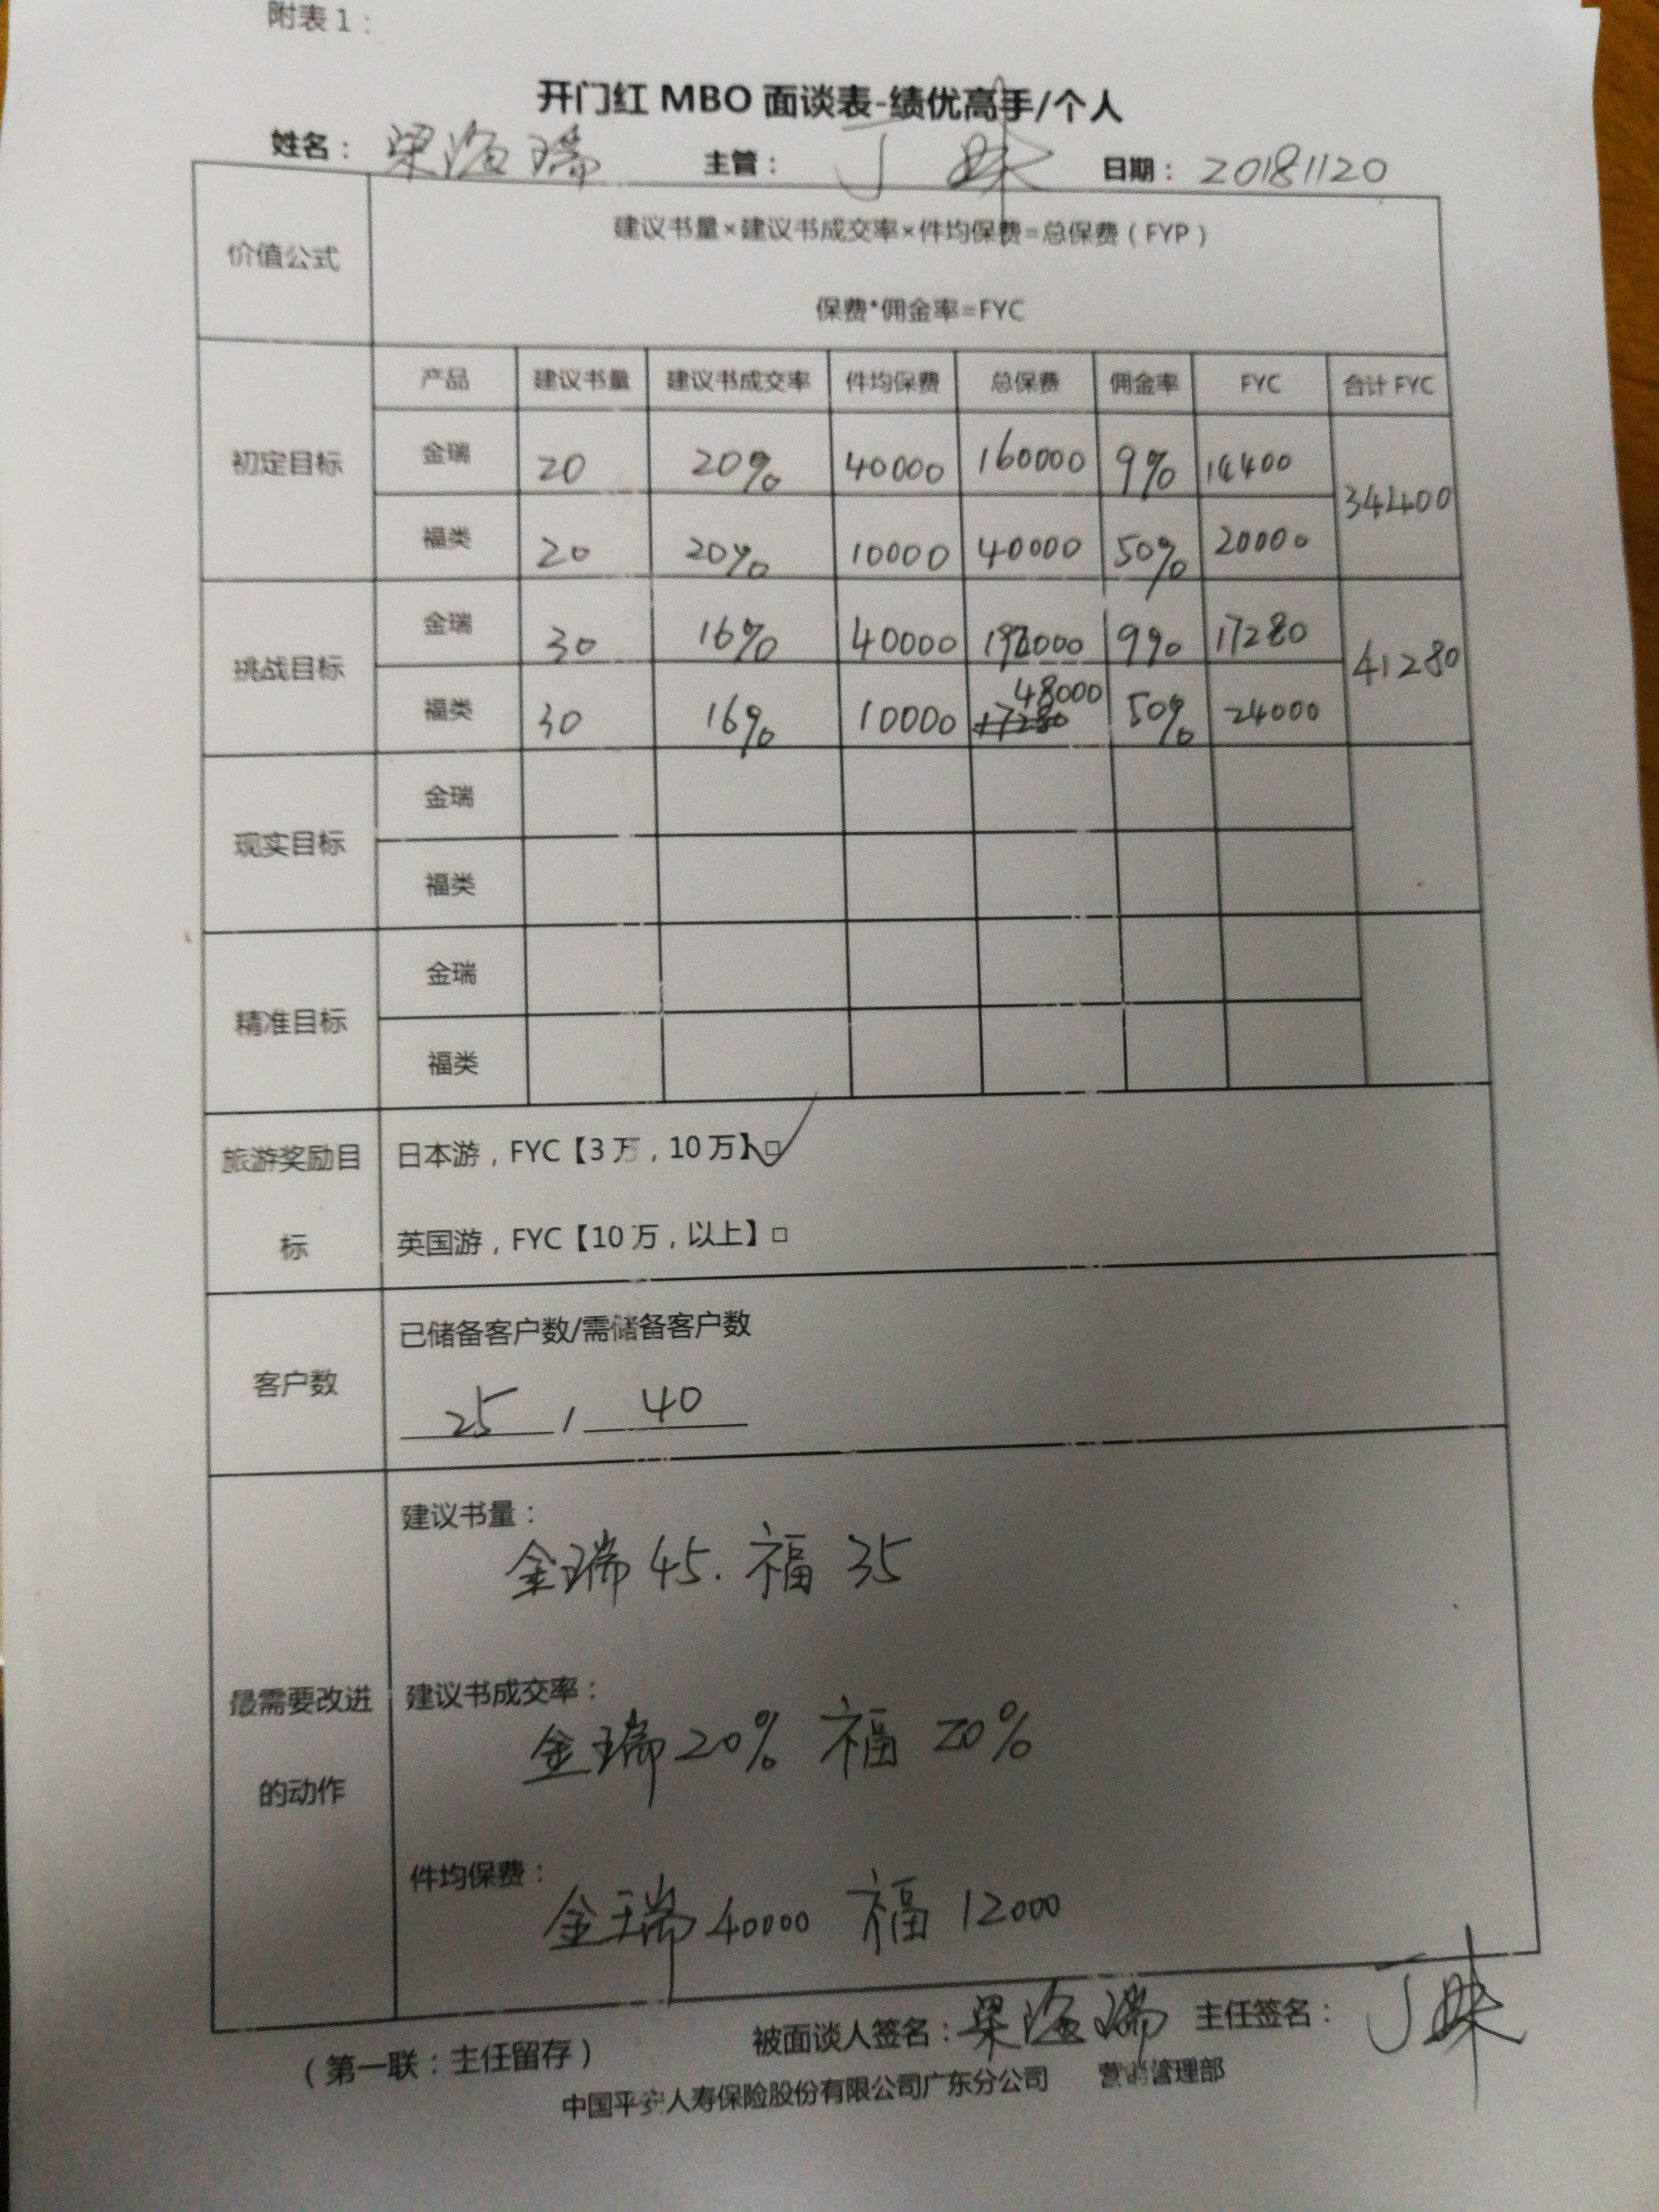 附表1：
开门红 MBO 面谈表-绩优高手/个人
姓名： 梁海瑞 主管： 丁妹 日期： 20181120
价值公式
建议书量×建议书成交率×件均保费=总保费（FYP）
保费*佣金率=FYC
产品 建议书量 建议书成交率 件均保费 总保费 佣金率 FYC 合计 FYC
初定目标
金瑞 20 20% 40000 160000 9% 14400
34400
福类 20 20% 10000 40000 50% 20000
挑战目标
金瑞 30 16% 40000 9% 17280
41280
48000
福类 30 16% 10000 17280 50% 24000
现实目标
金瑞
福类
精准目标
金瑞
福类
旅游奖励目
标
日本游，FYC【3万，10万】□
英国游，FYC【10万，以上】□
客户数
已储备客户数/需储备客户数
25 / 40
最需要改进
的动作
建议书量：
金瑞 45. 福 35
建议书成交率：
金瑞 20% 福 20%
件均保费：
金瑞 40000 福 12000
（第一联：主任留存） 被面谈人签名：梁海瑞 主任签名： 丁妹
中国平安人寿保险股份有限公司广东分公司 营销管理部